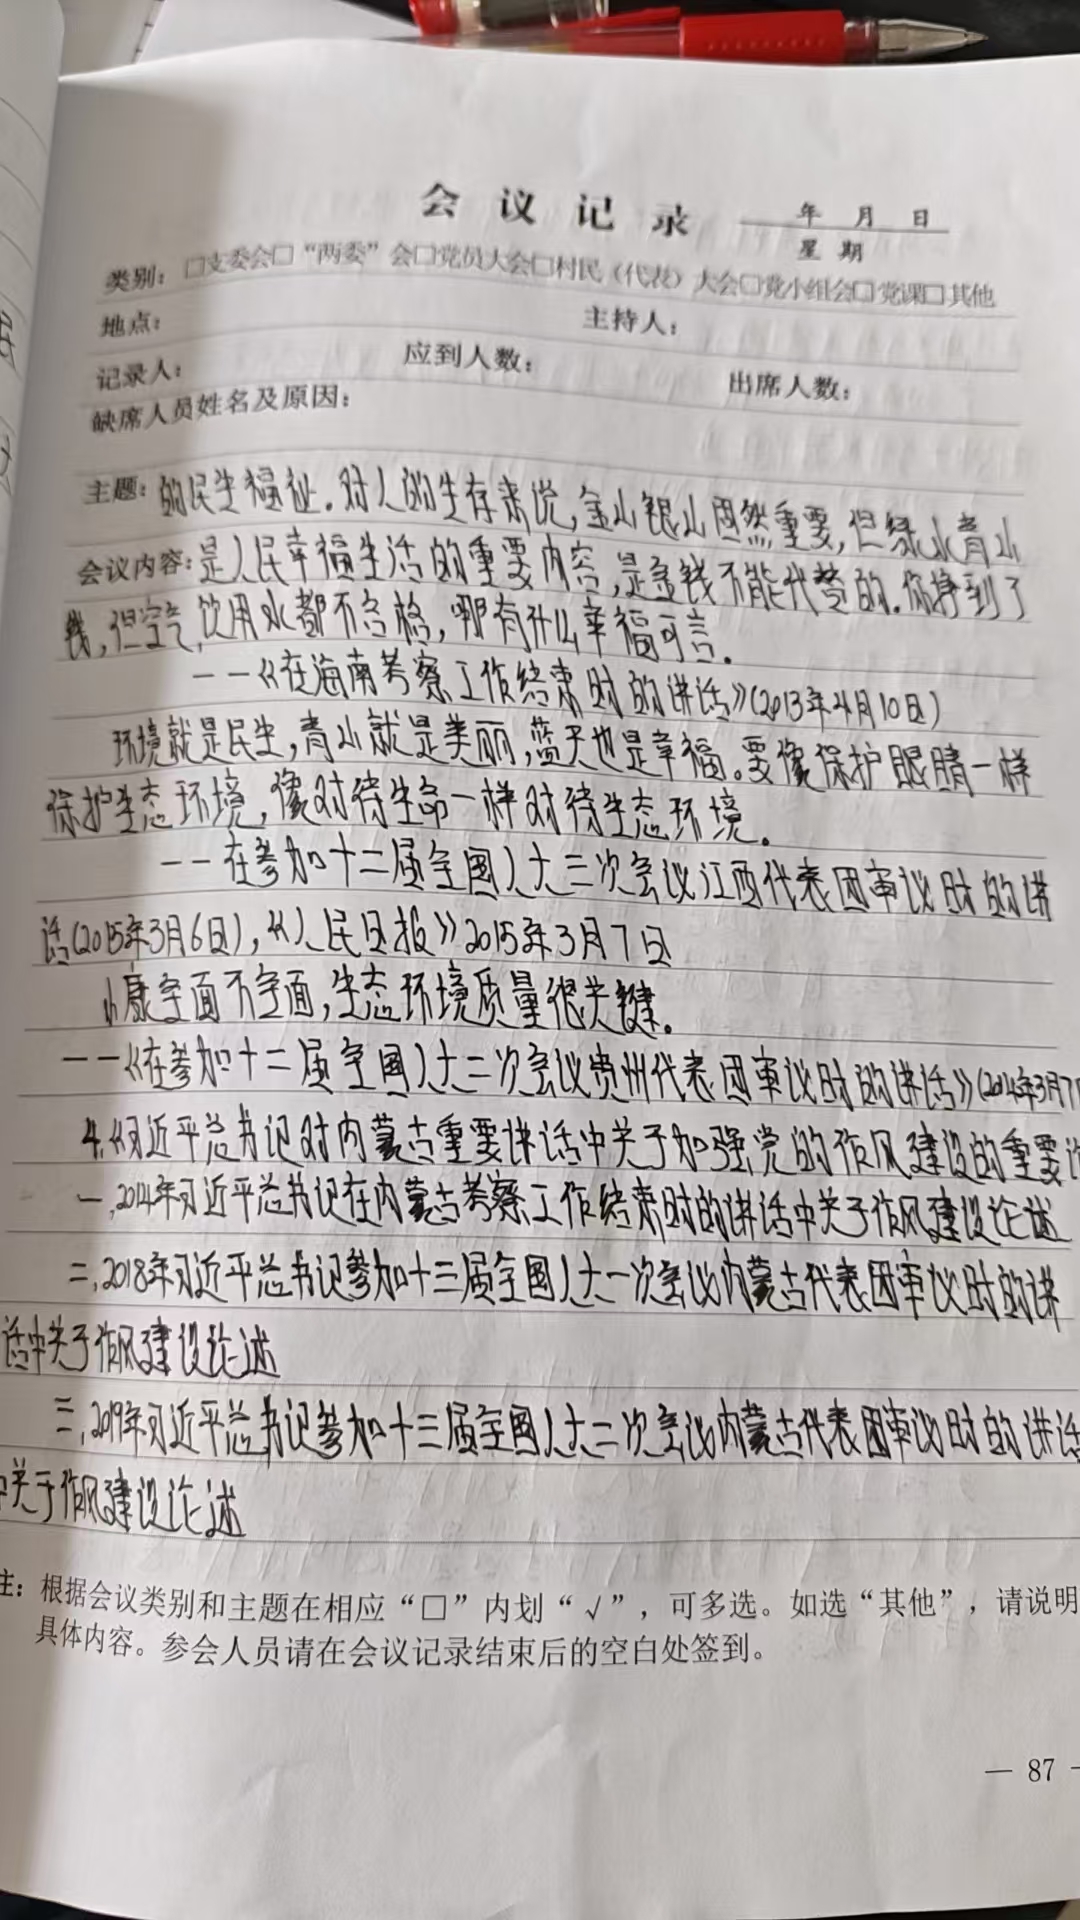 会议记录 年 月 日
星期
类别：□支委会□“两委”会□党员大会□村民（代表）大会□党小组会□党课□其他
地点： 主持人：
记录人： 应到人数： 出席人数：
缺席人员姓名及原因：
主题：的民生福祉.对人的生存来说,金山银山固然重要,但绿水青山
会议内容：是人民幸福生活的重要内容,是金钱不能代替的.你挣到了
钱,但空气,饮用水都不合格,哪有什么幸福可言.
——《在海南考察工作结束时的讲话》(2013年4月10日)
环境就是民生,青山就是美丽,蓝天也是幸福。要像保护眼睛一样
保护生态环境,像对待生命一样对待生态环境.
——在参加十二届全国人大三次会议江西代表团审议时的讲
话(2015年3月6日),《人民日报》2015年3月7日
小康全面不全面,生态环境质量很关键.
——《在参加十二届全国人大二次会议贵州代表团审议时的讲话》(2014年3月7
4.《习近平总书记对内蒙古重要讲话中关于加强党的作风建设的重要
一,2014年习近平总书记在内蒙古考察工作结束时的讲话中关于作风建设论述
二,2018年习近平总书记参加十三届全国人大一次会议内蒙古代表团审议时的讲
话中关于作风建设论述
三,2019年习近平总书记参加十三届全国人大二次会议内蒙古代表团审议时的讲话
中关于作风建设论述
注：根据会议类别和主题在相应“□”内划“√”，可多选。如选“其他”，请说明
具体内容。参会人员请在会议记录结束后的空白处签到。
— 87